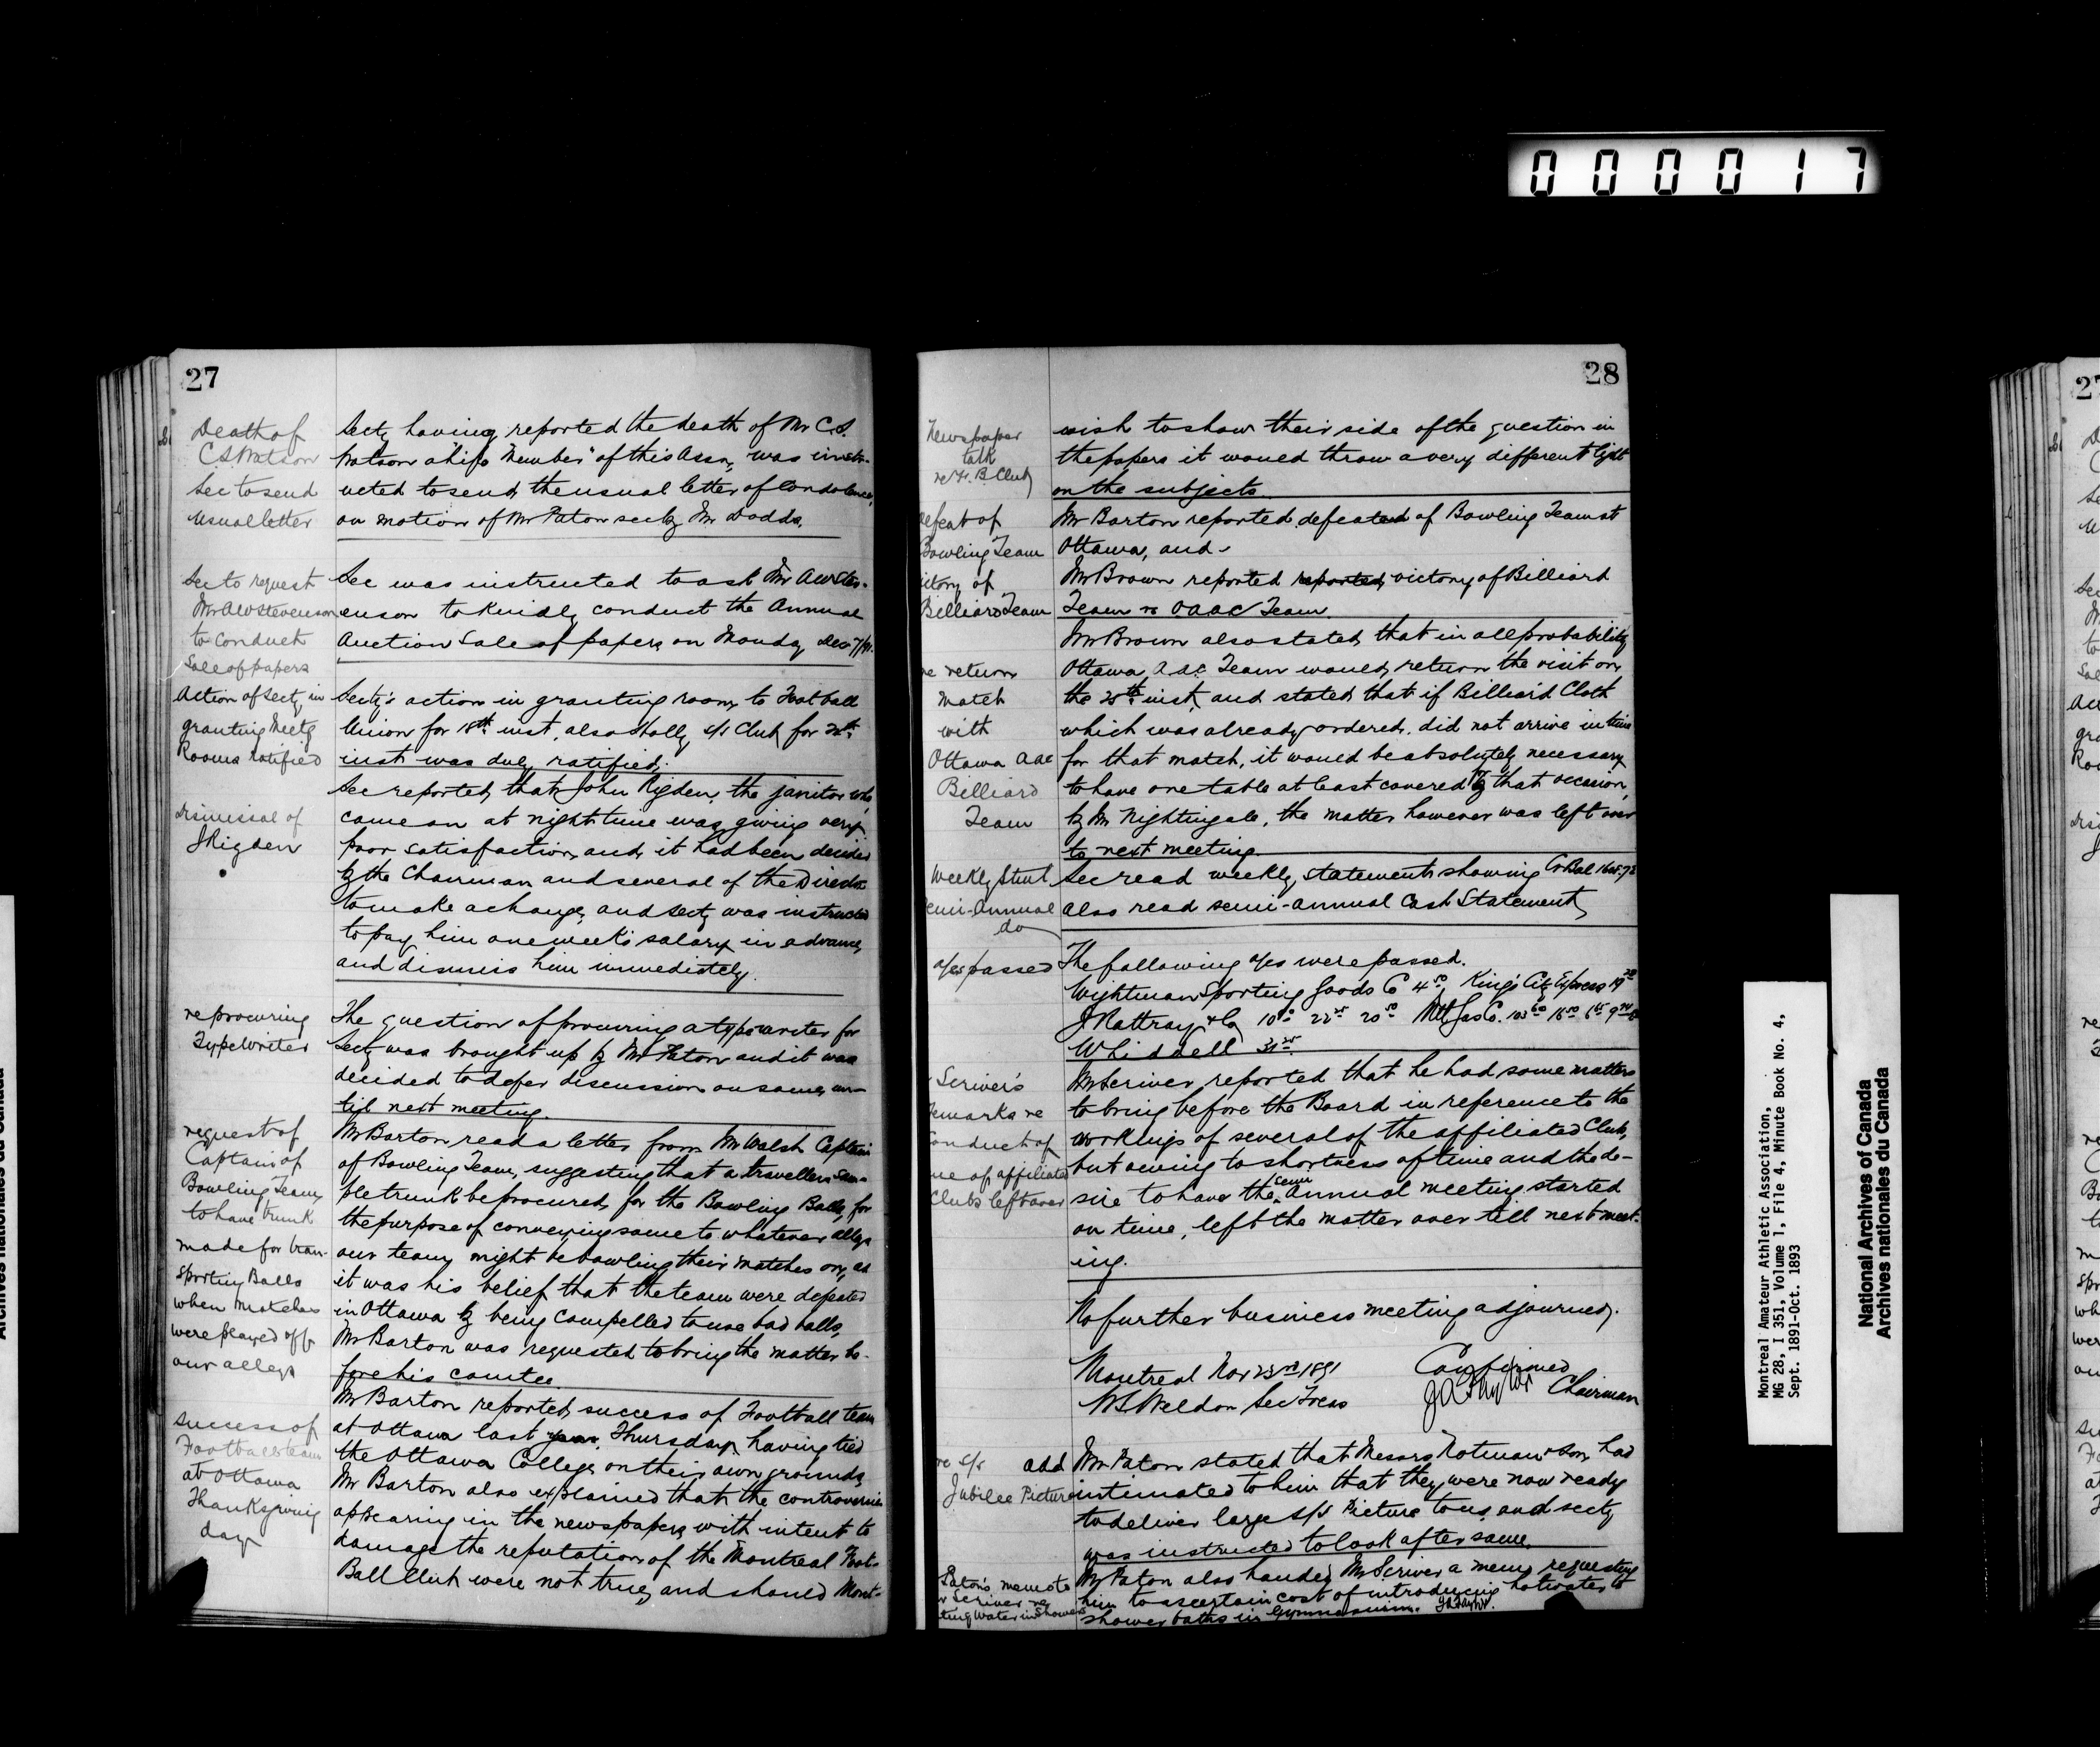 000017
27
Death of
C.S. Watson
Sec to send
usual letter
Secty having reported the death of Mr C.S.
Watson a "Life Member" of this Assn, was instr-
ucted to send the usual letter of condolence,
on motion of Mr Paton sec by Mr Dodds.
Sec to request
Mr A W Stevenson
to conduct
Sale of papers
Sec was instructed to ask Mr A W Stev-
enson to kindly conduct the Annual
Auction Sale of papers on Monday Dec 7/91.
Action of Secty in
granting Meetg
Rooms ratified
Secty's action in granting room to Football
Union for 18th inst, also Holly S/S Club for
inst was duly ratified.
dismissal of
J Rigden
Sec reported that John Rigden, the janitor who
came on at night time was giving very
poor satisfaction, and it had been decided
by the Chairman and several of the Directors
to make a change, and Secty was instructed
to pay him one week's salary in advance,
and dismiss him immediately.
re procuring
TypeWriter
The question of procuring a typewriter for
Secty was brought up by Mr Paton and it was
decided to defer discussion on same un-
til next meeting.
request of
Captain of
Bowling Team
to have trunk
made for tran-
sporting Balls
when Matches
were played off
our alleys
Mr Barton read a letter from Mr Walsh Captain
of Bowling Team, suggesting that a travellers sam-
ple trunk be procured, for the Bowling Balls, for
the purpose of conveying same to whatever alleys
our team might be bowling their matches on, as
it was his belief that the team were defeated
in Ottawa by being compelled to use bad balls,
Mr Barton was requested to bring the matter be-
fore his comtee
success of
Football team
at Ottawa
Thanksgiving
day
Mr Barton reported success of Football team
at Ottawa last year Thursday, having tied
the Ottawa College on their own grounds,
Mr Barton also explained that the controversies
appearing in the newspapers with intent to
damage the reputation of the Montreal Foot-
Ball Club were not true, and should Mont-
28
Newspaper
talk
re F. B. Club
wish to show their side of the question in
the papers it would throw a very different light
on the subjects.
defeat of
Bowling Team
victory of
Billiard Team
Mr Barton reported defeated of Bowling Team at
Ottawa, and
Mr Brown reported reported victory of Billiard
Team vs OAAC Team
re return
match
with
Ottawa aac
Billiard
Team
Mr Brown also stated, that in all probability
Ottawa a.a.c. Team would, return the visit on
the 28th inst, and stated that if Billiard Cloth
which was already ordered, did not arrive in time
for that match, it would be absolutely necessary
to have one table at least covered by that occasion,
by Mr Nightingale, the matter however was left over
to next meeting.
Weekly Stmt
Semi-Annual
do
Sec read weekly, statements showing Cr Bal
also read semi-annual Cash Statement
a/cs passed
The following a/cs were passed.
Wightman Sporting Goods Co King's City Express
J Rattray & Co Mtl Gas Co.
Whiddell
Scriver's
remarks re
conduct of
some of affiliated
Clubs left over
Mr Scriver reported that he had some matters
to bring before the Board in reference to the
workings of several of the affiliated Clubs,
but owing to shortness of time and the de-
sire to have the semi Annual meeting started
on time, left the matter over till next meet-
ing.
No further business meeting adjourned.
Montreal Nov 23rd 1891
W S Weldon Sec Treas
Confirmed
J A Taylor Chairman
re S/S
Jubilee Picture
add Mr Paton stated that Messrs Notman & Son had
intimated to him that they were now ready
to deliver large S/S Picture to us, and secty
was instructed to look after same.
Paton's memo to
Mr Scriver re
Water in Showers
Mr Paton also handed Mr Scriver a memo, requesting
him to ascertain cost of introducing hot water to
shower baths in Gymnasium. J A Taylor.
Montreal Amateur Athletic Association,
MG 28, I 351, Volume 1, File 4, Minute Book No. 4,
Sept. 1891-Oct. 1893
National Archives of Canada
Archives nationales du Canada